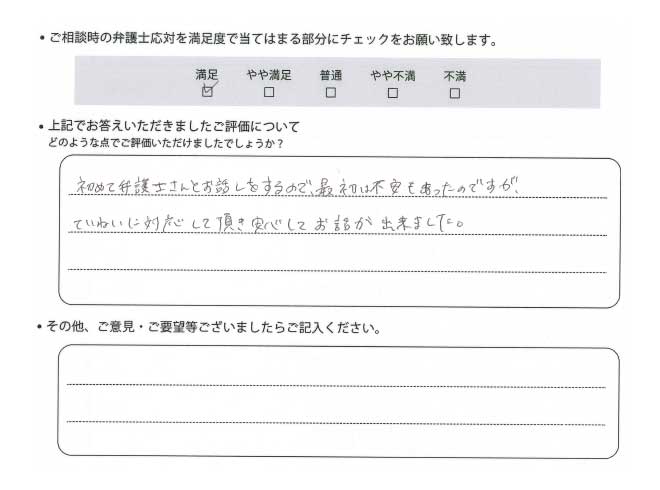 • ご相談時の弁護士応対を満足度で当てはまる部分にチェックをお願い致します。
満足 やや満足 普通 やや不満 不満
☑ □ □ □ □
• 上記でお答えいただきましたご評価について
どのような点でご評価いただけましたでしょうか？
初めて弁護士さんとお話しをするので、最初は不安もあったのですが、
ていねいに対応して頂き安心してお話が出来ました。
• その他、ご意見・ご要望等ございましたらご記入ください。